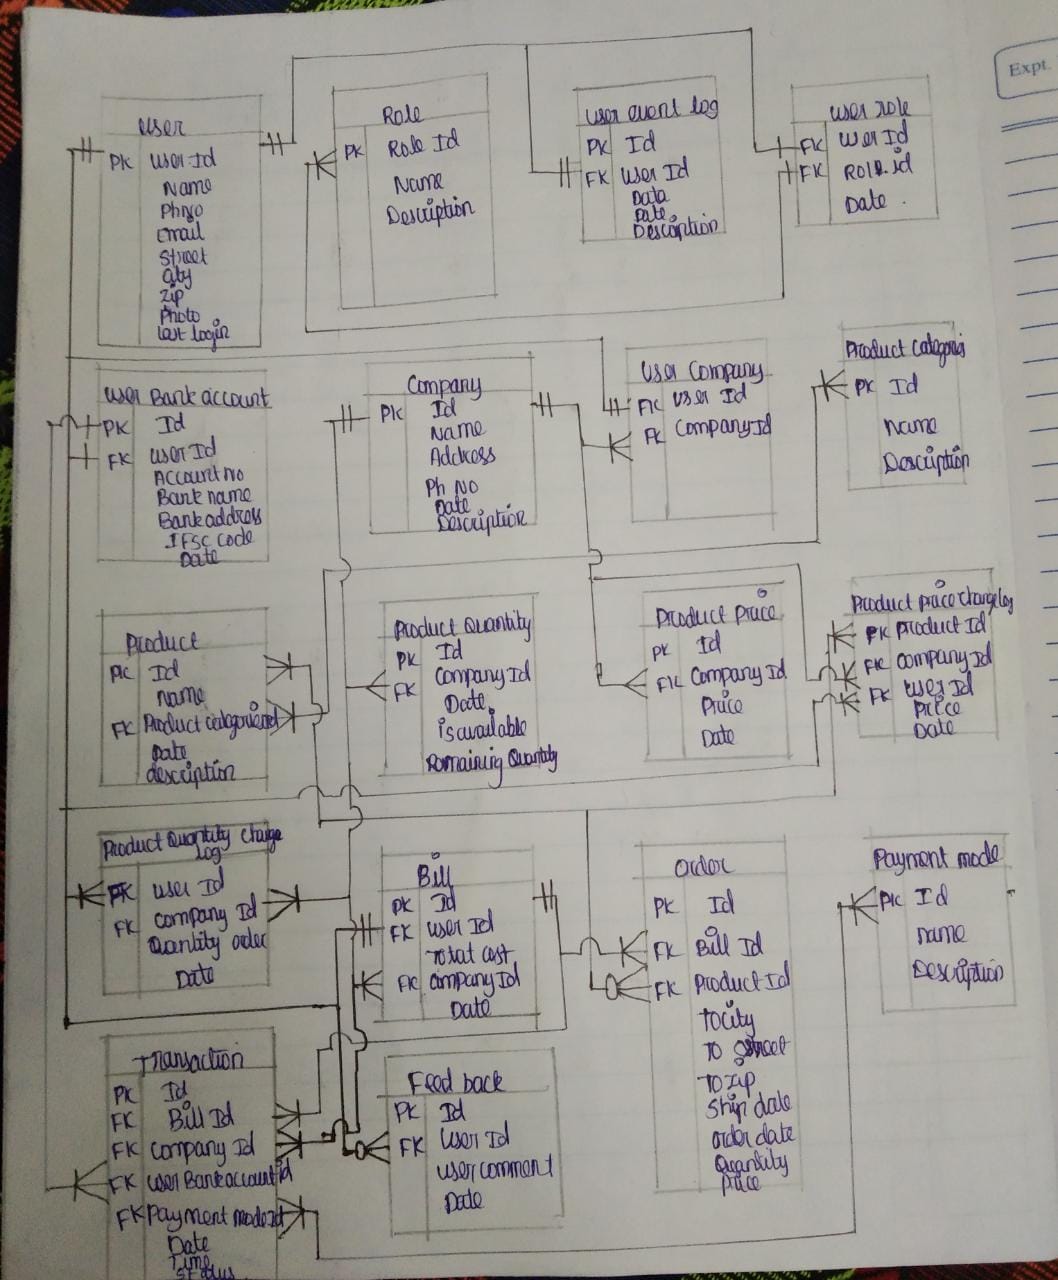 Expt.
User
PK User Id
Name
Ph No
Email
Street
City
Zip
Photo
last login
Role
PK Role Id
Name
Description
User event log
PK Id
FK User Id
Data
Date
Description
User role
FK User Id
FK Role id
Date .
User Bank account
PK Id
FK User Id
Account no
Bank name
Bank address
IFSC code
Date
Company
PK Id
Name
Address
Ph No
Date
Description
User Company
FK User Id
FK Company Id
Product Categori
PK Id
Name
Description
Product
PK Id
Name
FK Product categorie Id
Date
description
Product Quantity
PK Id
FK Company Id
Date
is available
Remaining Quantity
Product Price
PK Id
FK Company Id
Price
Date
Product price change log
PK Product Id
FK Company Id
FK User Id
Price
Date
Product Quantity Change
log
FK User Id
FK Company Id
Quantity order
Date
Bill
PK Id
FK User Id
Total cost
FK Company Id
Date
Order
PK Id
FK Bill Id
FK Product Id
To City
To Street
To Zip
Ship date
Order date
Quantity
Price
Payment mode
PK Id
Name
Description
Transaction
PK Id
FK Bill Id
FK Company Id
FK User Bank account id
FK Payment mode Id
Date
Time
Status
Feed back
PK Id
FK User Id
User comment
Date